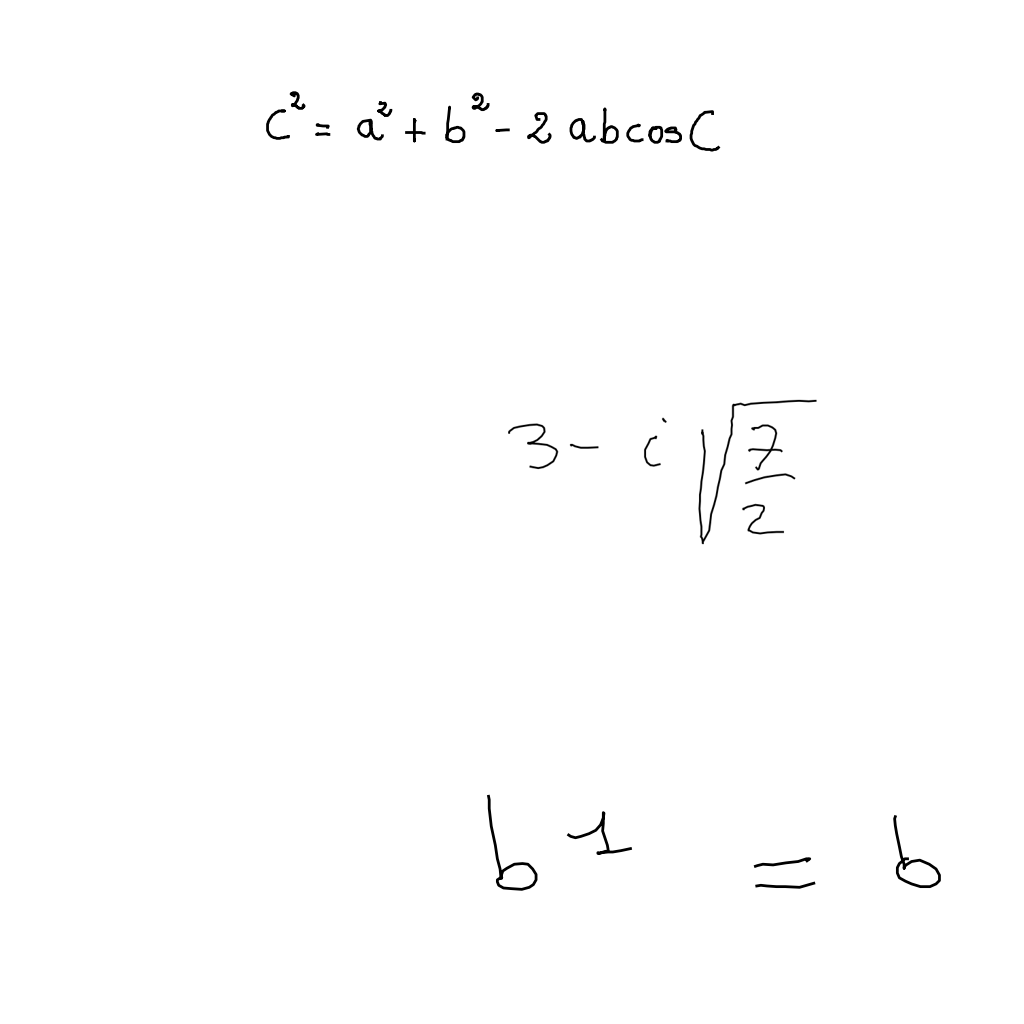 c² = a² + b² - 2 ab cos C
3 - i √(7/2)
b¹ = b